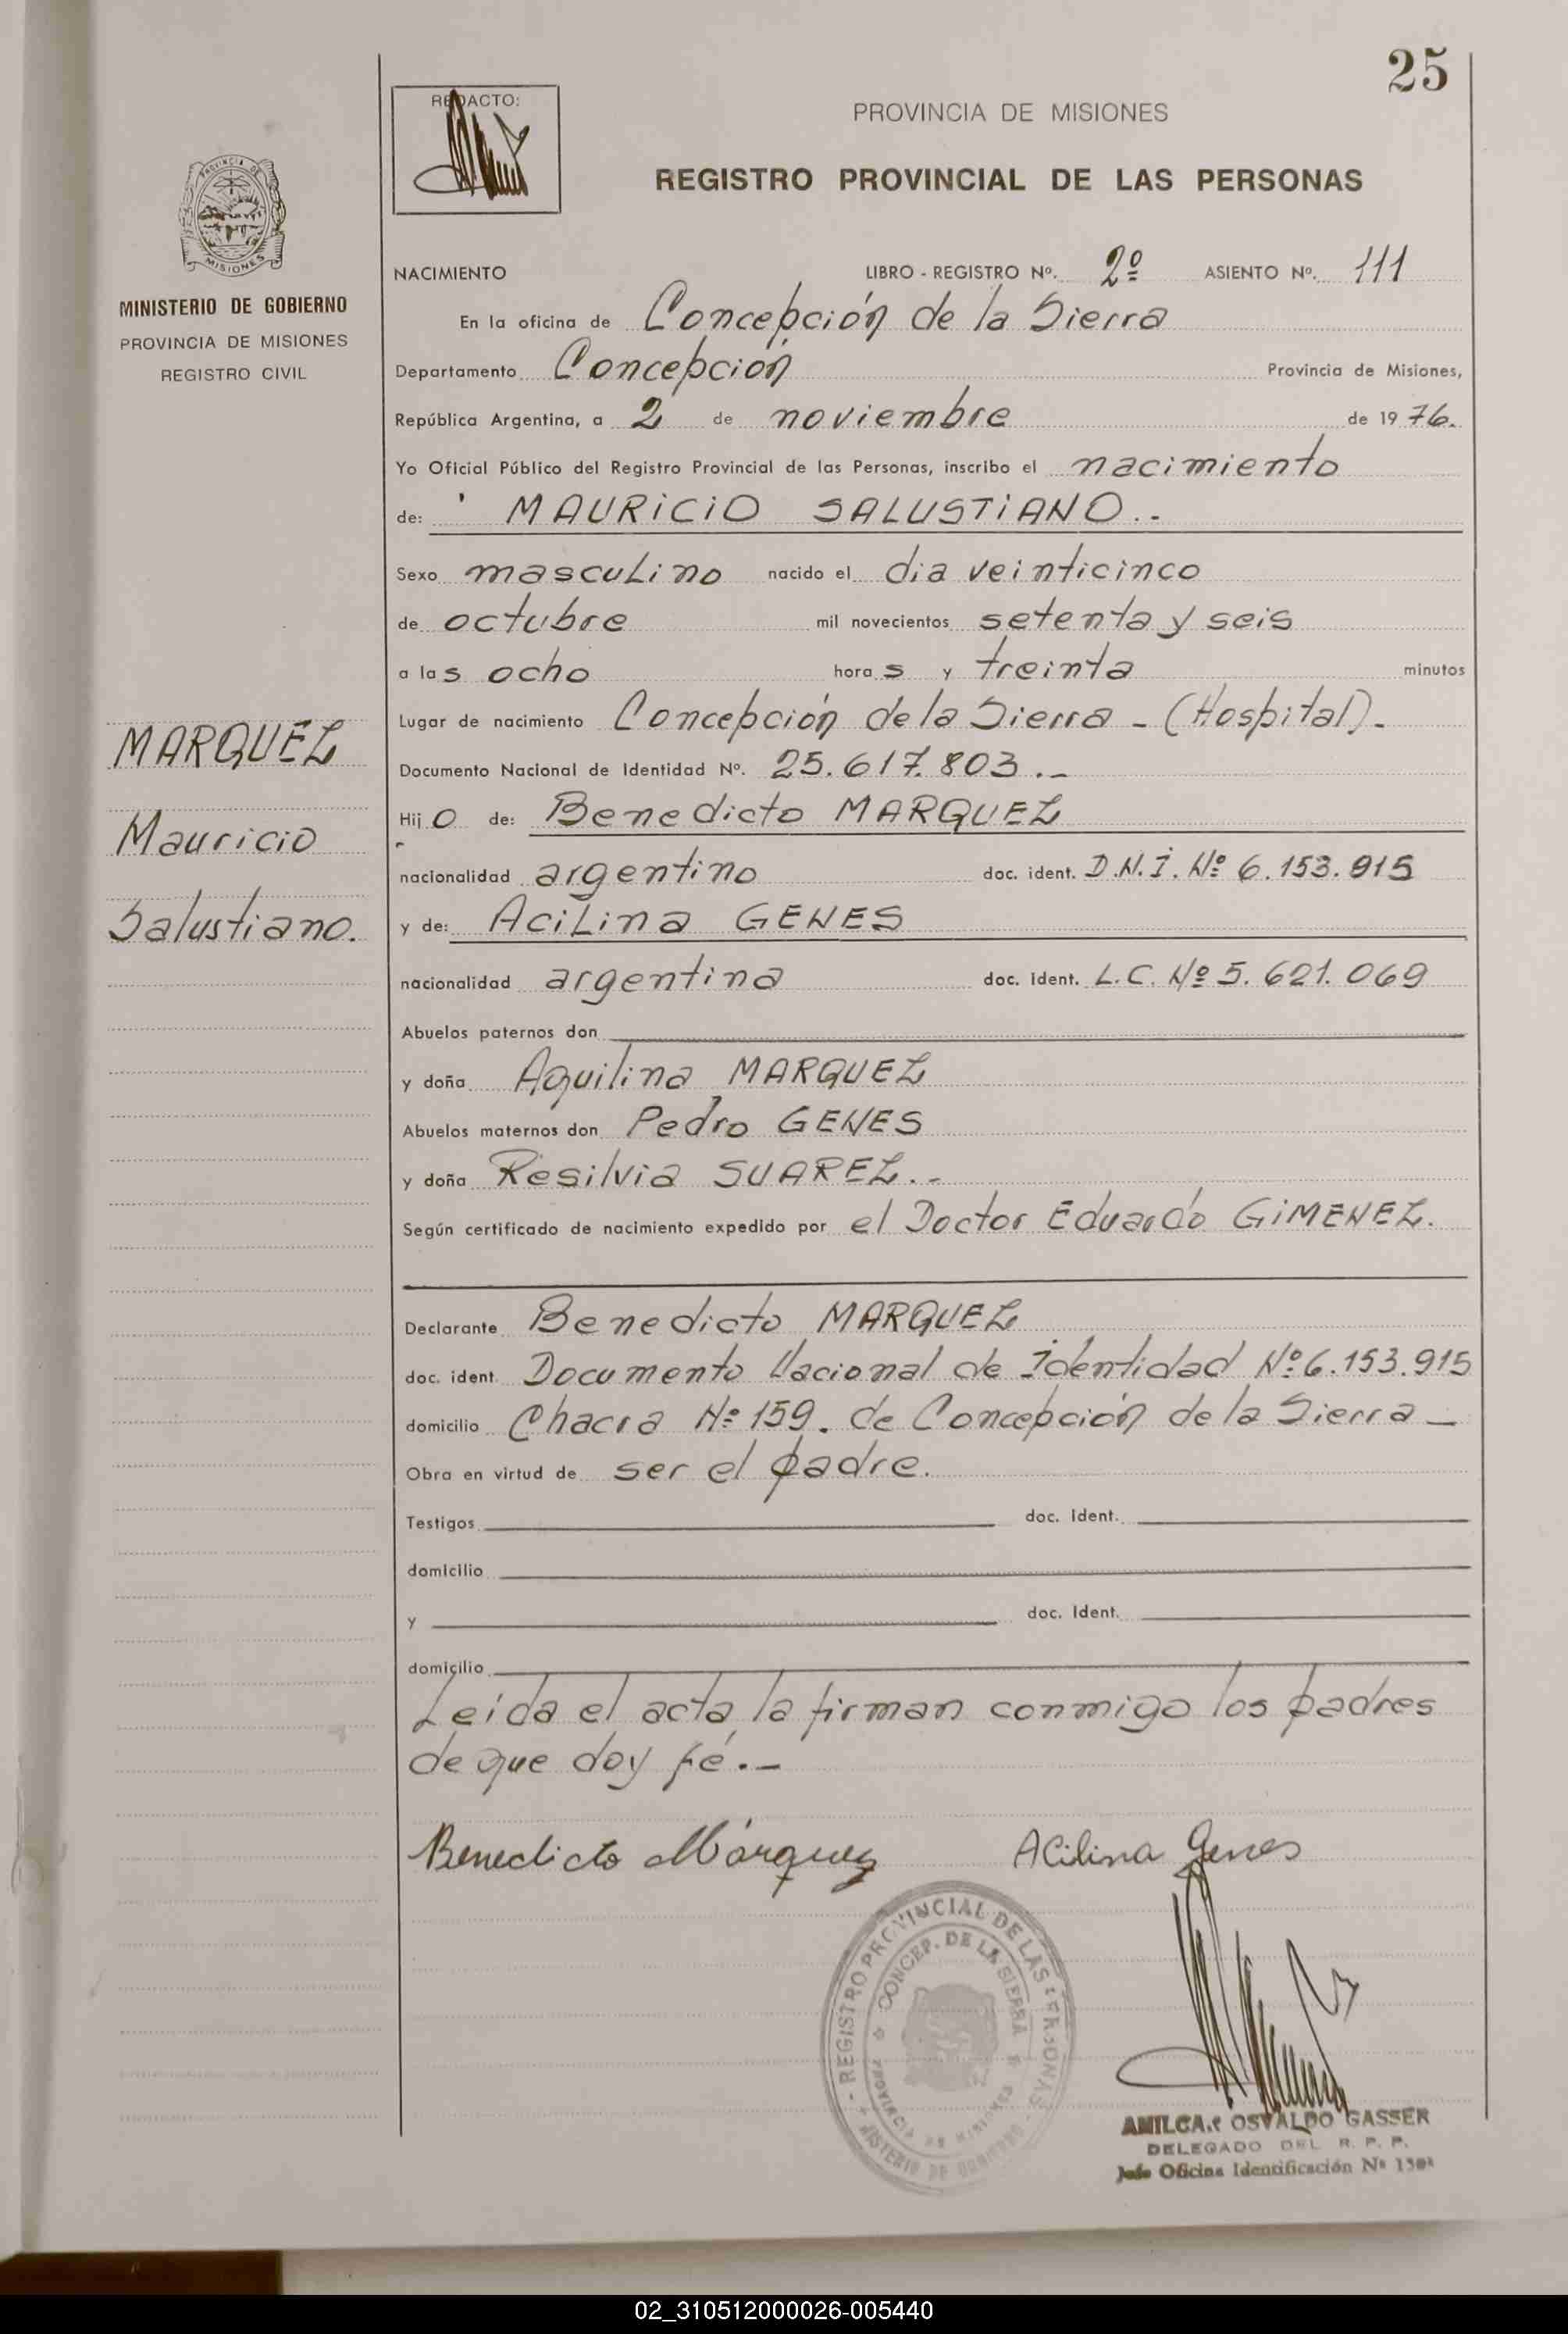 25
REDACTO:
PROVINCIA DE MISIONES
REGISTRO PROVINCIAL DE LAS PERSONAS
PROVINCIA DE
MISIONES
MINISTERIO DE GOBIERNO
PROVINCIA DE MISIONES
REGISTRO CIVIL
NACIMIENTO LIBRO - REGISTRO Nº. 2º ASIENTO Nº. 111
En la oficina de Concepción de la Sierra
Departamento Concepción Provincia de Misiones,
República Argentina, a 2 de noviembre de 1976.
Yo Oficial Público del Registro Provincial de las Personas, inscribo el nacimiento
de: MAURICIO SALUSTIANO.-
Sexo masculino nacido el dia veinticinco
de octubre mil novecientos setenta y seis
a las ocho horas y treinta minutos
Lugar de nacimiento Concepción de la Sierra - (Hospital).-
MARQUEZ
Mauricio
Salustiano.
Documento Nacional de Identidad Nº. 25.617.803.-
Hijo de: Benedicto MARQUEZ
nacionalidad argentino doc. ident. D.N.I. Nº 6.153.915
y de: Acilina GENES
nacionalidad argentina doc. ident. L.C. Nº 5.621.069
Abuelos paternos don
y doña Aquilina MARQUEZ
Abuelos maternos don Pedro GENES
y doña Resilvia SUAREZ.-
Según certificado de nacimiento expedido por el Doctor Eduardo GIMENEZ.
Declarante Benedicto MARQUEZ
doc. ident. Documento Nacional de Identidad Nº 6.153.915
domicilio Chacra Nº 159. de Concepción de la Sierra -
Obra en virtud de ser el padre.
Testigos doc. ident.
domicilio
y doc. ident.
domicilio
Leída el acta, la firman conmigo los padres
de que doy fé.-
Benedicto Márquez Acilina Genes
REGISTRO PROVINCIAL DE LAS PERSONAS
CONCEP. DE LA SIERRA
PROVINCIA DE MISIONES
MINISTERIO DE GOBIERNO
AMILCAR OSVALDO GASSER
DELEGADO DEL R. P. P.
Jefe Oficina Identificación Nº
02_310512000026-005440